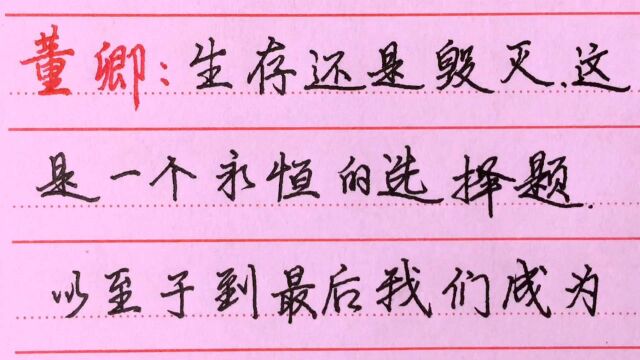 董卿:生存还是毁灭.这
是一个永恒的选择题.
以至于到最后我们成为